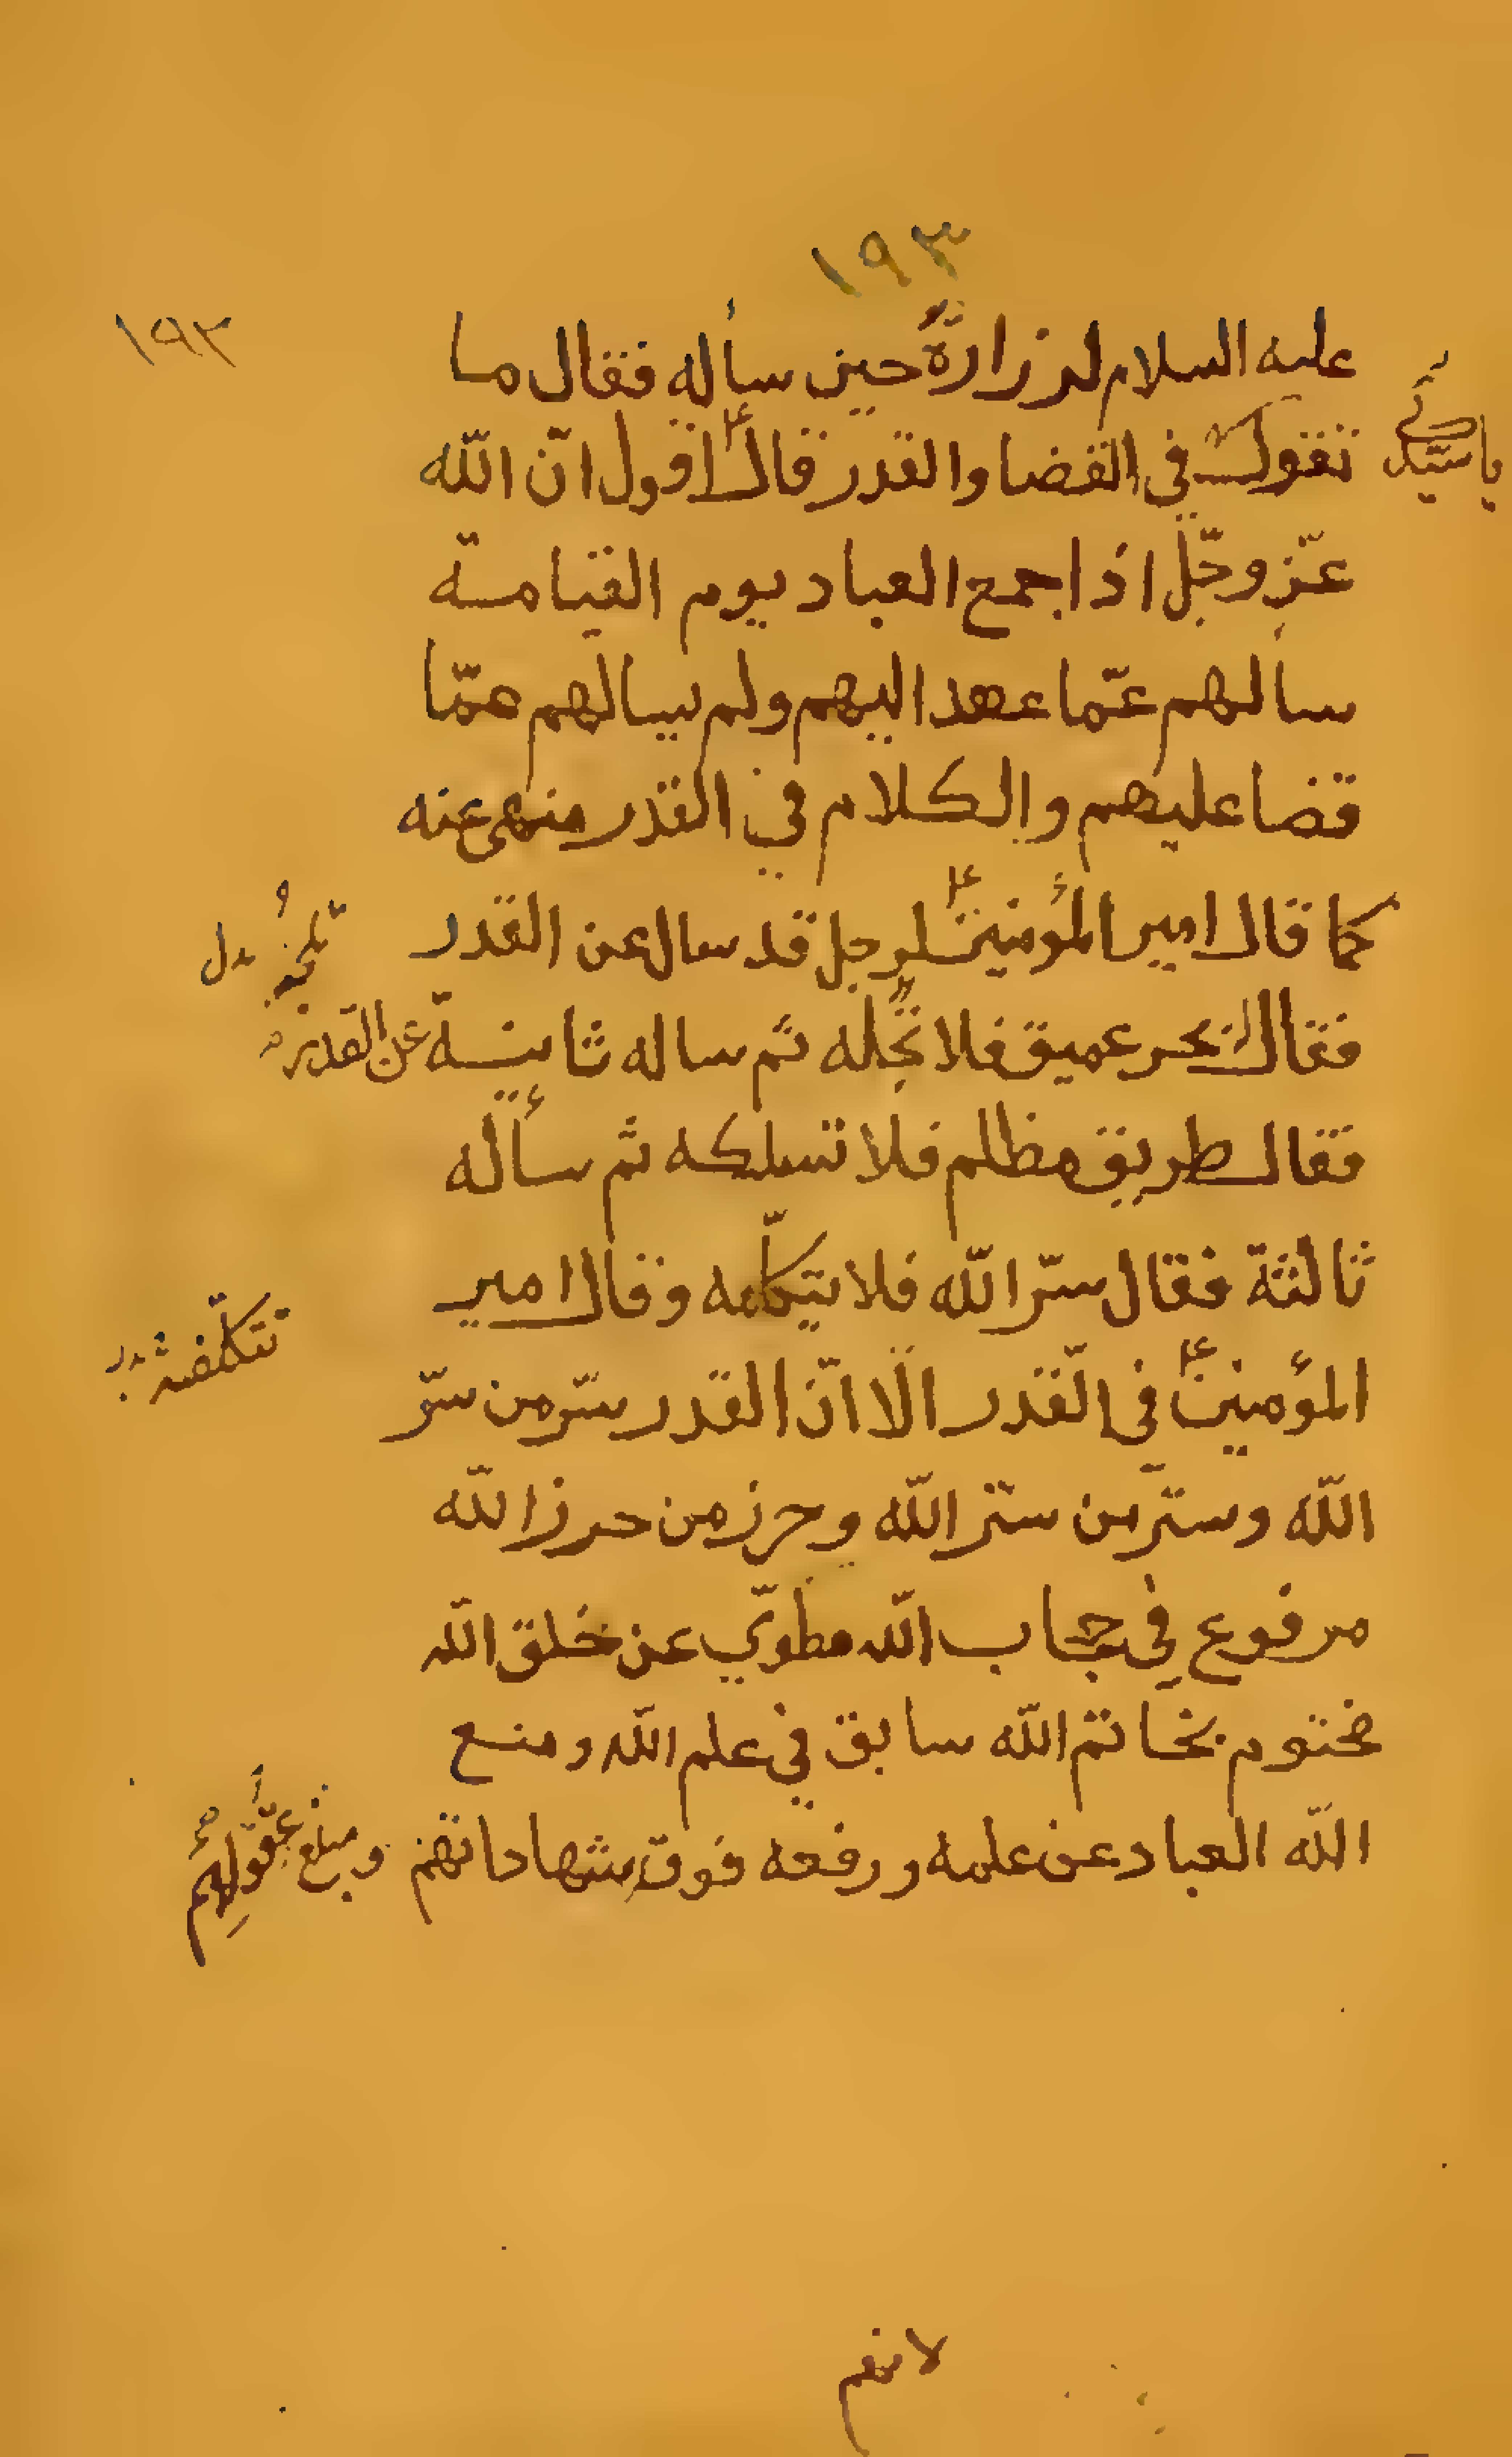 ١٩٣
١٩٣
عليه السلام لزرارة حين سأله فقال ما
تقول يا سيدي في القضا والقدر قال ع اقول انّ الله
عزّ وجلّ اذا جمع العباد يوم القيامة
سألهم عمّا عهد اليهم ولم يسالهم عمّا
قضا عليهم والكلام في القدر منهى عنه
كما قال امير المؤمنين ع لرجل قد سال عن القدر
فقال بحر عميق فلا تلجه ثم ساله ثانية عن القدر
فقال طريق مظلم فلا تسلكه ثم سأله
ثالثة فقال سرّ الله فلا تتكلمه وقال امير
تتكلفه
المؤمنين ع في القدر الا انّ القدر سرّ من سرّ
الله وستر من ستر الله وحرز من حرز الله
مرفوع في حجاب الله مطويّ عن خلق الله
مختوم بخاتم الله سابق في علم الله ومنع
الله العباد عن علمه ورفعه فوق شهاداتهم ومبلغ عقولهم
لانهم